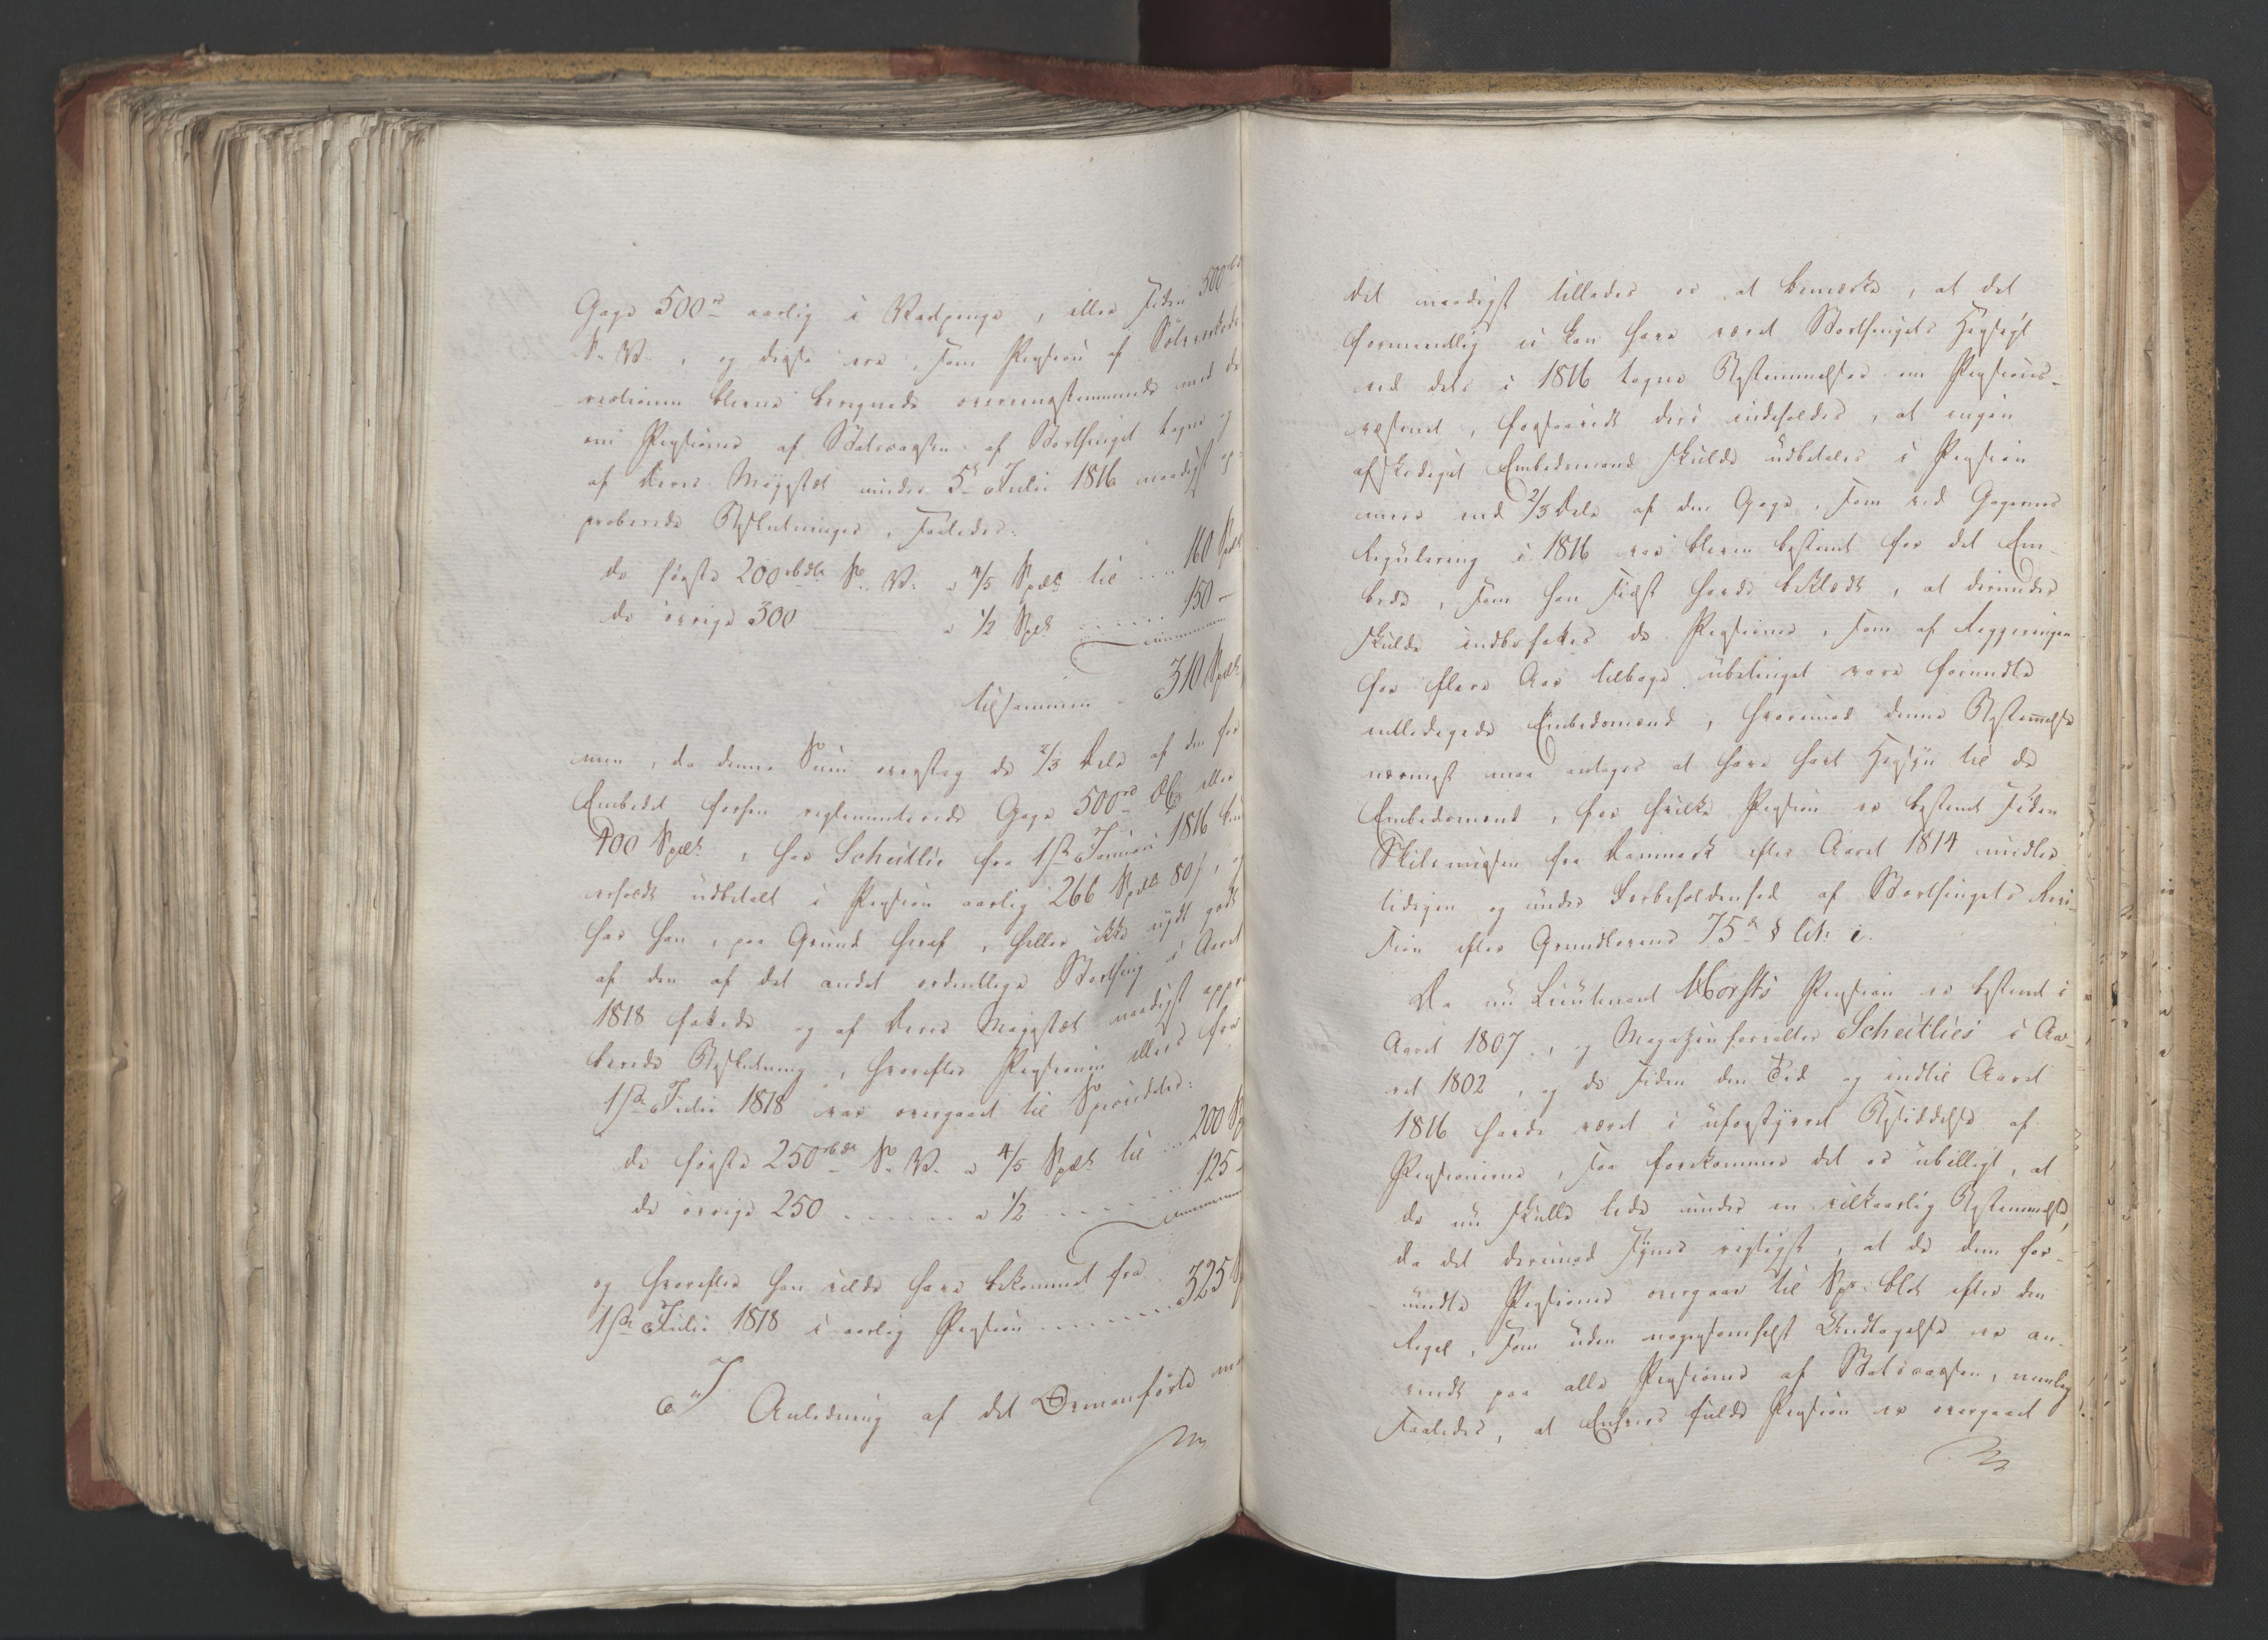 Gage 500rd aarlig i Kadpenge, eller siden 500rbd
S. V., og disse ere, som Pension af Sölvværkets
vedkommende blevne beregnede overensstemmende med de
om Pensioner af Statscassen af Storthinget tagne og
af Deres Majestæt under 5te Julii 1816 naadigst ap-
proberede Beslutninger, saaledes:
de første 200rbdlr S. V. a 4/5 Spdlr til .... 160 Spdlr
de övrige 300 —— a 1/2 Spdlr ...... 150 —
tilsammen - 310 Spdlr
men, da denne Sum oversteg de 2/3 Dele af den for
Embedet forhen reglementerede Gage 500rd eller
400 Spdlr, har Scheitlie fra 1ste Januari 1816 kun
erholdt udbetalt i Pension aarlig 266 Spdlr 80 s, og
har han, paa Grund heraf, heller ikke nydt godt
af den af det andet ordentlige Storthing i Aaret
1818 fattede og af Deres Majestæt naadigst appro-
berede Beslutning, hvorefter Pensionen ellers fra
1ste Julii 1818 var overgaaet til Specidaler:
de første 250rbdlr S. V. a 4/5 Spdlr til ... 200 Sp
de övrige 250 ...... a 1/2 ...... 125 -
og hvorefter han vilde have bekommet fra
1ste Julii 1818 i aarlig Pension ....... 325 Sp
I Anledning af det Ovenanförte
det naadigst tillades os at bemærke, at det
formeentlig ei kan have været Storthingets Hensigt
ved dets i 1816 tagne Bestemmelser om Pensions-
væsenet, forsaavidt deri indeholdes, at ingen
afskediget Embedsmand skulde udbetales i Pension
mere end 2/3 Dele af den Gage, som ved Gagernes
Regulering i 1816 var bleven bestemt for det Em-
bede, som han sidst havde beklædt, at derunder
skulde indbefattes de Pensioner, som af Regjeringen
for flere Aar tilbage ubetinget vare forundte
entledigede Embedsmænd, hvorimod denne Bestemmelse
nærmest maa antages at have havt Hensyn til de
Embedsmænd, for hvilke Pension er bestemt siden
Skilsmissen fra Danmark efter Aaret 1814 midler-
tidigen og under Forbeholdenhed af Storthingets Revi-
sion efter Grundlovens 75de § lit: i.
Da nu Lieutenant Horsts Pension er bestemt i
Aaret 1807, og Magazinforvalter Scheitlies i Aa-
ret 1802, og de siden den Tid og indtil Aaret
1816 havde været i uforstyrret Besiddelse af
Pensionerne, saa forekommer det os ubilligt, at
de nu skulle lide under en vilkaarlig Bestemmelse,
da det derimod synes rigtigst, at de dem for-
undte Pensioner overgaae til Spe. blot efter den
Regel, som uden nogensomhelst Undtagelse er an-
vendt paa alle Pensioner af Statscassen, nemlig
saaledes, at Enhvers fulde Pension er overgaaet